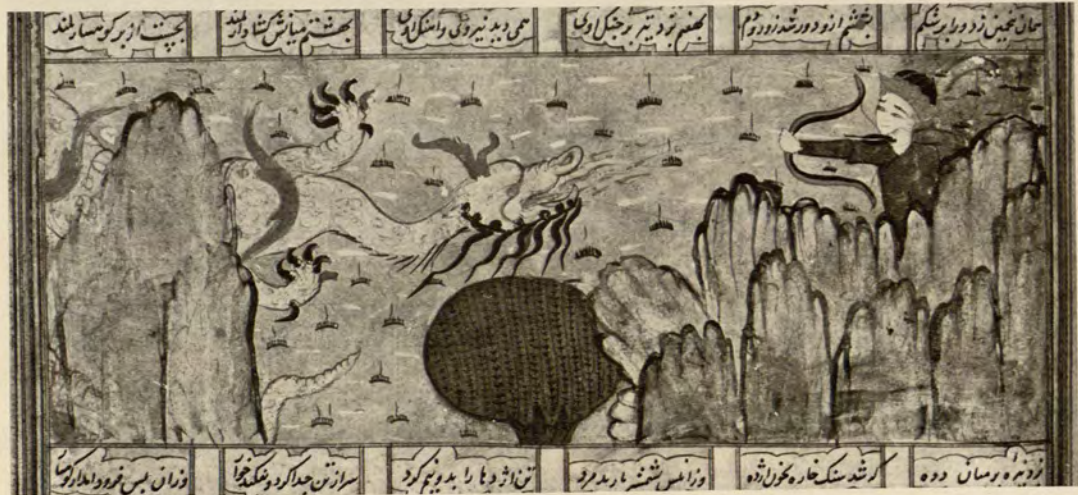 همان پنجمین زد ورا بر شکم بششم ازو دور شد زور و دم بهفتم بزد تیر بر جنک اوی همی دید نیروی و آهنک اوی بهشتم میانش کشاد از بند بجست از بر کوهسار بلند
بزد نیزه بر میان دده که شد سنک خاره بخون آژده وزان پس بشمشیر یازید مرد تن اژدها را بدو نیم کرد سر از تن جدا کرد و بفکند خوار وزان پس فرود آمد از کوهسار